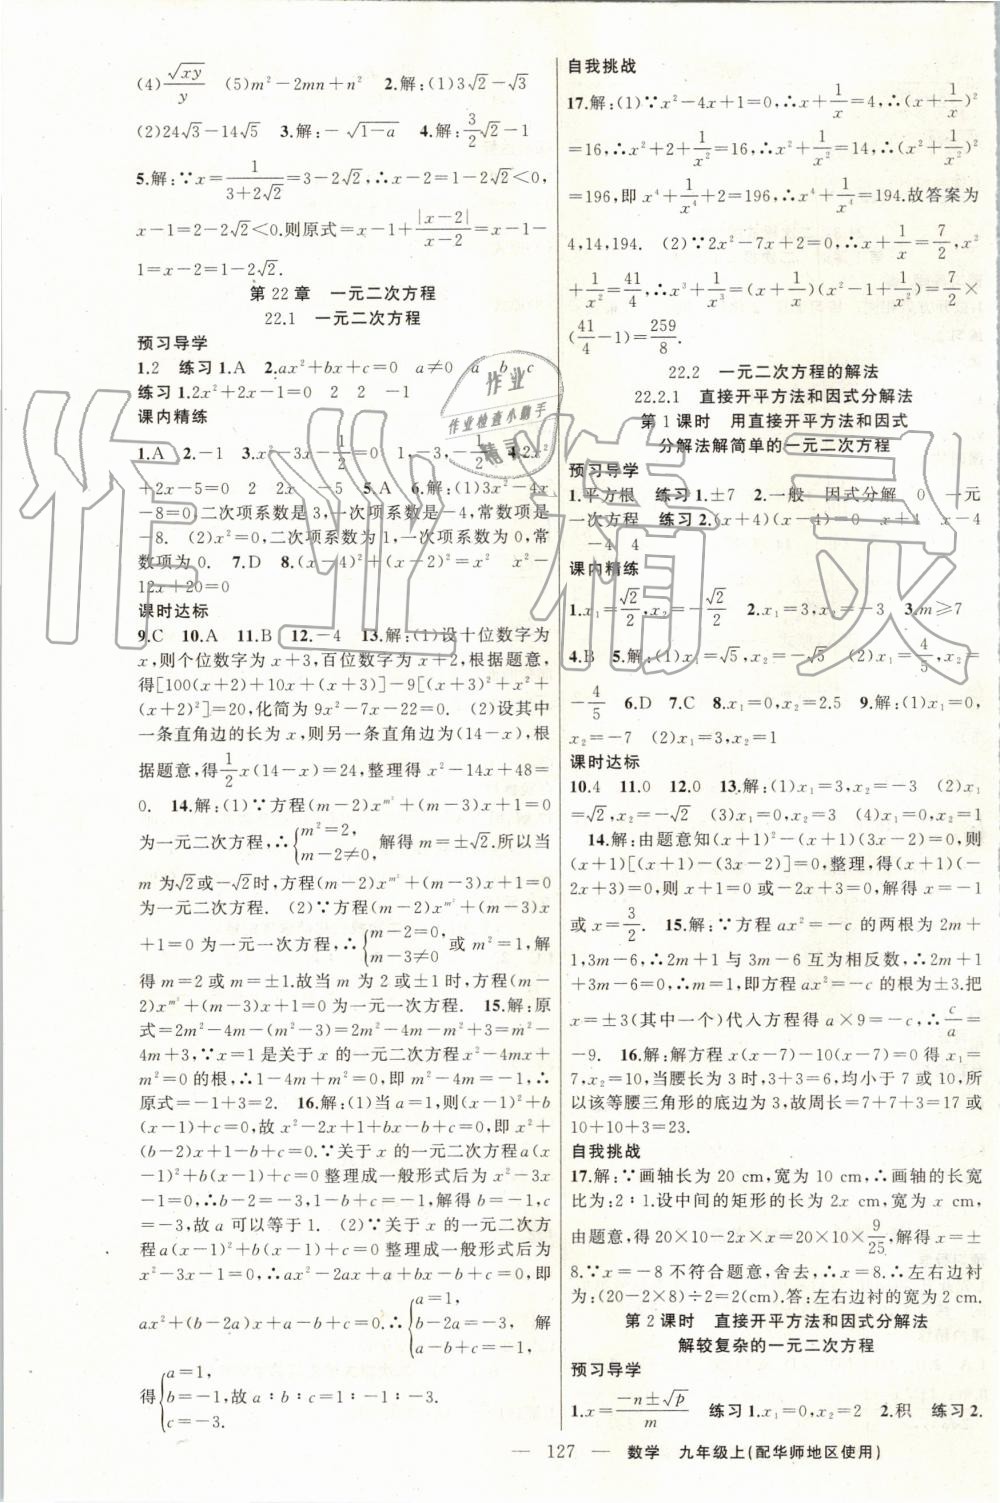 (4)√xy/y (5)m²-2mn+n² 2.解:(1)3√2-√3
(2)24√3-14√5 3.解:-√1-a 4.解:3/2√2-1
5.解:∵x=1/(3+2√2)=3-2√2,∴x-2=1-2√2<0,
x-1=2-2√2<0.则原式=x-1+|x-2|/(x-2)=x-1-
1=x-2=1-2√2.
第22章 一元二次方程
22.1 一元二次方程
预习导学
1.2 练习1.A 2.ax²+bx+c=0 a≠0 a b c
练习1.2x²+2x-1=0 2 2 -1
课内精练
1.A 2.-1 3.x²-3x-1/2=0 1,-3,-1/2 4.2x²
+2x-5=0 2x -5 5.A 6.解:(1)3x²-4x
-8=0,二次项系数是3,一次项系数是-4,常数项是
-8. (2)x²=0,二次项系数为1,一次项系数为0,常
数项为0. 7.D 8.(x-4)²+(x-2)²=x² x²-
12x+20=0
课时达标
9.C 10.A 11.B 12.-4 13.解:(1)设十位数字为
x,则个位数字为x+3,百位数字为x+2,根据题意,
得[100(x+2)+10x+(x+3)]-9[(x+3)²+x²+
(x+2)²]=20,化简为9x²-7x-22=0. (2)设其中
一条直角边的长为x,则另一条直角边为(14-x),根
据题意,得1/2x(14-x)=24,整理得x²-14x+48=
0. 14.解:(1)∵方程(m-2)x^m²+(m-3)x+1=0
为一元二次方程,∴{m²=2, m-2≠0, 解得m=±√2.所以当
m为√2或-√2时,方程(m-2)x^m²+(m-3)x+1=0
为一元二次方程. (2)∵方程(m-2)x^m²+(m-3)x
+1=0为一元一次方程,∴{m-2=0, m-3≠0 或m²=1,解
得m=2或m=±1.故当m为2或±1时,方程(m-
2)x^m²+(m-3)x+1=0为一元一次方程. 15.解:原
式=2m²-4m-(m²-3)=2m²-4m-m²+3=m²-
4m+3,∵x=1是关于x的一元二次方程x²-4mx+
m²=0的根,∴1-4m+m²=0,即m²-4m=-1,∴
原式=-1+3=2. 16.解:(1)当a=1,则(x-1)²+b
(x-1)+c=0,故x²-2x+1+bx-b+c=0,即x²+
(b-2)x+1-b+c=0.∵关于x的一元二次方程a(x-
1)²+b(x-1)+c=0整理成一般形式后为x²-3x
-1=0,∴b-2=-3,1-b+c=-1,解得b=-1,c=
-3,故a可以等于1. (2)∵关于x的一元二次方
程a(x-1)²+b(x-1)+c=0整理成一般形式后为
x²-3x-1=0,∴ax²-2ax+a+bx-b+c=0,即
ax²+(b-2a)x+a-b+c=0.∴{a=1, b-2a=-3, a-b+c=-1, 解
得{a=1, b=-1, c=-3. 故a∶b∶c=1∶-1∶-3.
自我挑战
17.解:(1)∵x²-4x+1=0,∴x+1/x=4,∴(x+1/x)²
=16,∴x²+2+1/x²=16,∴x²+1/x²=14,∴(x²+1/x²)²=
196,即x⁴+1/x⁴+2=196,∴x⁴+1/x⁴=194.故答案为
4,14,194. (2)∵2x²-7x+2=0,∴x+1/x=7/2,x²
+1/x²=41/4,∴x³+1/x³=(x+1/x)(x²-1+1/x²)=7/2×
(41/4-1)=259/8.
22.2 一元二次方程的解法
22.2.1 直接开平方法和因式分解法
第1课时 用直接开平方法和因式
分解法解简单的一元二次方程
预习导学
1.平方根 练习1.±7 2.一般 因式分解 0 一元
一次方程 练习2.(x+4)(x-4)=0 x+4 x-4
-4 4
课内精练
1.x₁=√2/2,x₂=-√2/2 2.x₁=3,x₂=-3 3.m≥7
4.B 5.解:(1)x₁=√5,x₂=-√5 (2)x₁=4/5,x₂=
-4/5 6.D 7.C 8.x₁=0,x₂=2.5 9.解:(1)x₁=0,
x₂=-7 (2)x₁=3,x₂=1
课时达标
10.4 11.0 12.0 13.解:(1)x₁=3,x₂=-3 (2)x₁
=√2,x₂=-√2 (3)x₁=0,x₂=3 (4)x₁=0,x₂=1
14.解:由题意知(x+1)²-(x+1)(3x-2)=0,则
(x+1)[(x+1)-(3x-2)]=0,整理,得(x+1)(-
2x+3)=0,则x+1=0或-2x+3=0,解得x=-1
或x=3/2. 15.解:∵方程ax²=-c的两根为2m+
1,3m-6,∴2m+1与3m-6互为相反数,∴2m+1
+3m-6=0,∴m=1,即方程ax²=-c的根为±3.把
x=±3(其中一个)代入方程得a×9=-c,∴c/a=
-9. 16.解:解方程x(x-7)-10(x-7)=0得x₁=
7,x₂=10,当腰长为3时,3+3=6,均小于7或10,所
以该等腰三角形的底边为3,故周长=7+7+3=17或
10+10+3=23.
自我挑战
17.解:∵画轴长为20 cm,宽为10 cm,∴画轴的长宽
比为:2∶1.设中间的矩形的长为2x cm,宽为x cm,
由题意,得20×10-2x·x=20×10×9/25,解得:x=±
8.∵x=-8不符合题意,舍去,∴x=8.∴左右边衬
为:(20-2×8)÷2=2(cm).答:左右边衬的宽为2 cm.
第2课时 直接开平方法和因式分解法
解较复杂的一元二次方程
预习导学
1.x=(-n±√p)/m 练习1.x₁=0,x₂=2 2.积 练习2.
— 127 — 数学 九年级上(配华师地区使用)
作业精灵
作业
作业检查小助手
精灵